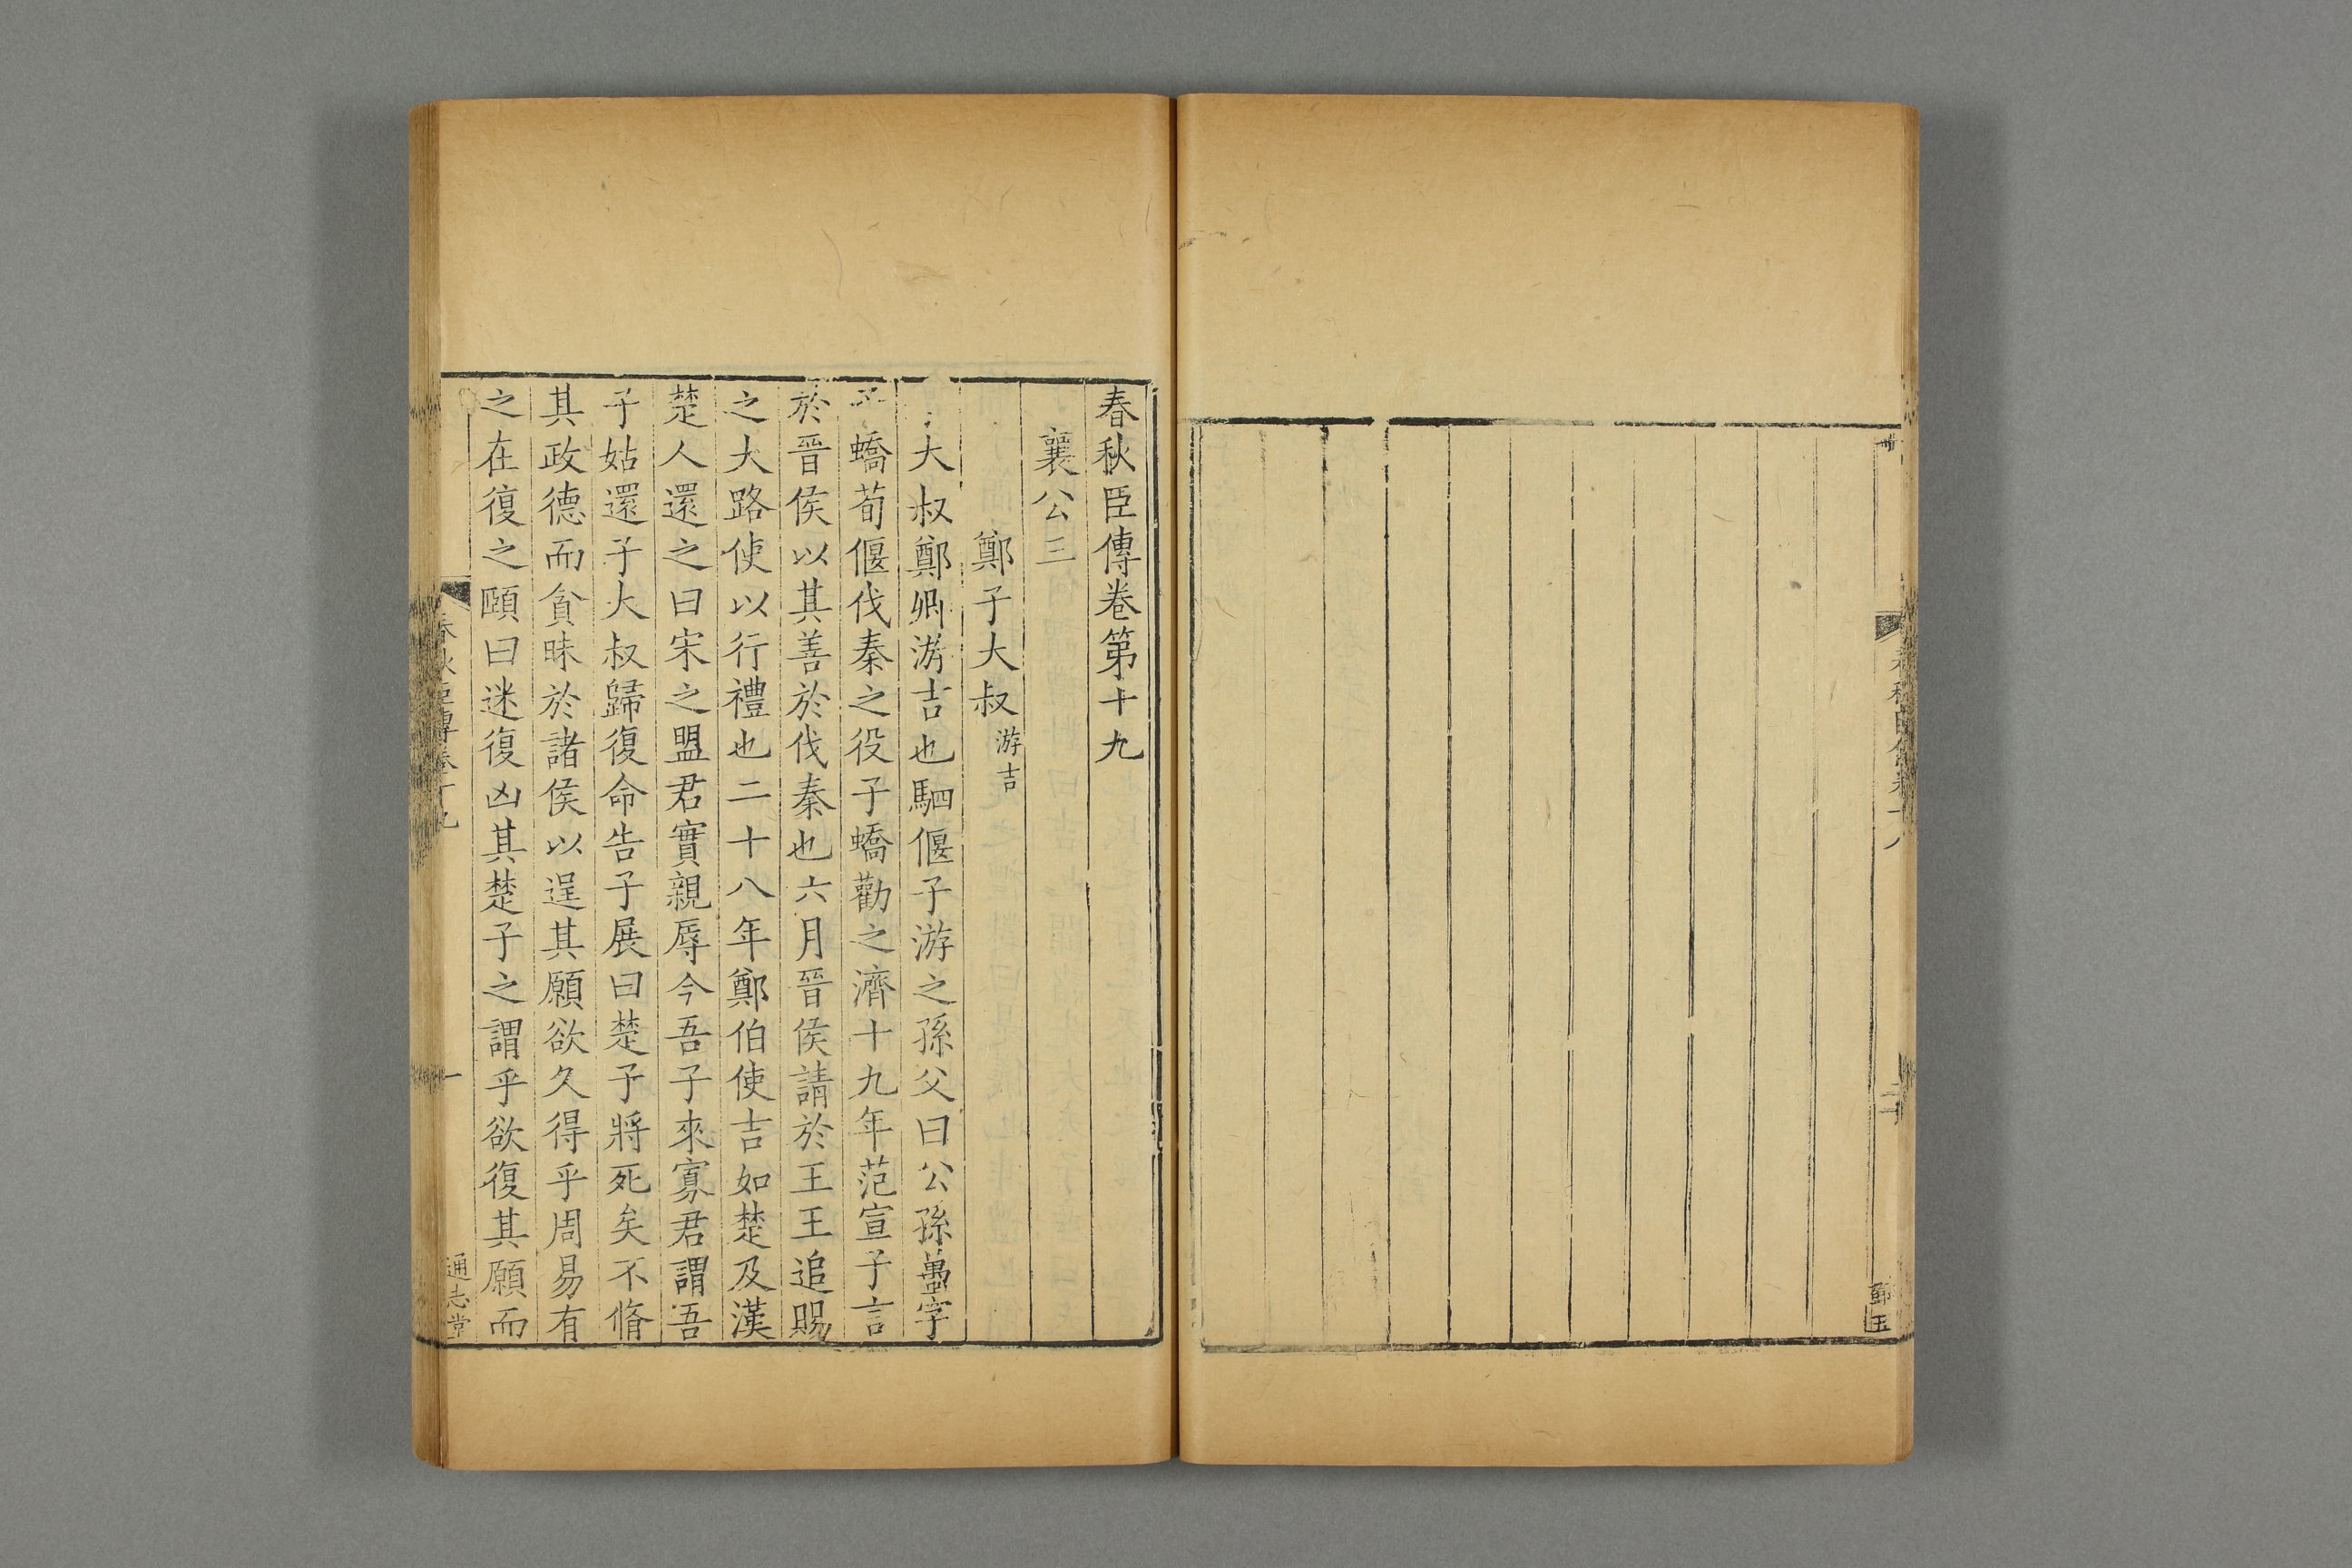 春秋臣傳卷十八
二十
鄧玉
春秋臣傳卷第十九
襄公三
鄭子大叔游吉
大叔鄭卿游吉也駟偃子游之孫父曰公孫蠆字
子蟜荀偃伐秦之役子蟜勸之濟十九年范宣子言
於晉侯以其善於伐秦也六月晉侯請於王王追賜
之大路使以行禮也二十八年鄭伯使吉如楚及漢
楚人還之曰宋之盟君實親辱今吾子來寡君謂吾
子姑還子大叔歸復命告子展曰楚子將死矣不脩
其政德而貪昧於諸侯以逞其願欲久得乎周易有
之在復之頤曰迷復凶其楚子之謂乎欲復其願而
春秋臣傳卷十九
一
通志堂